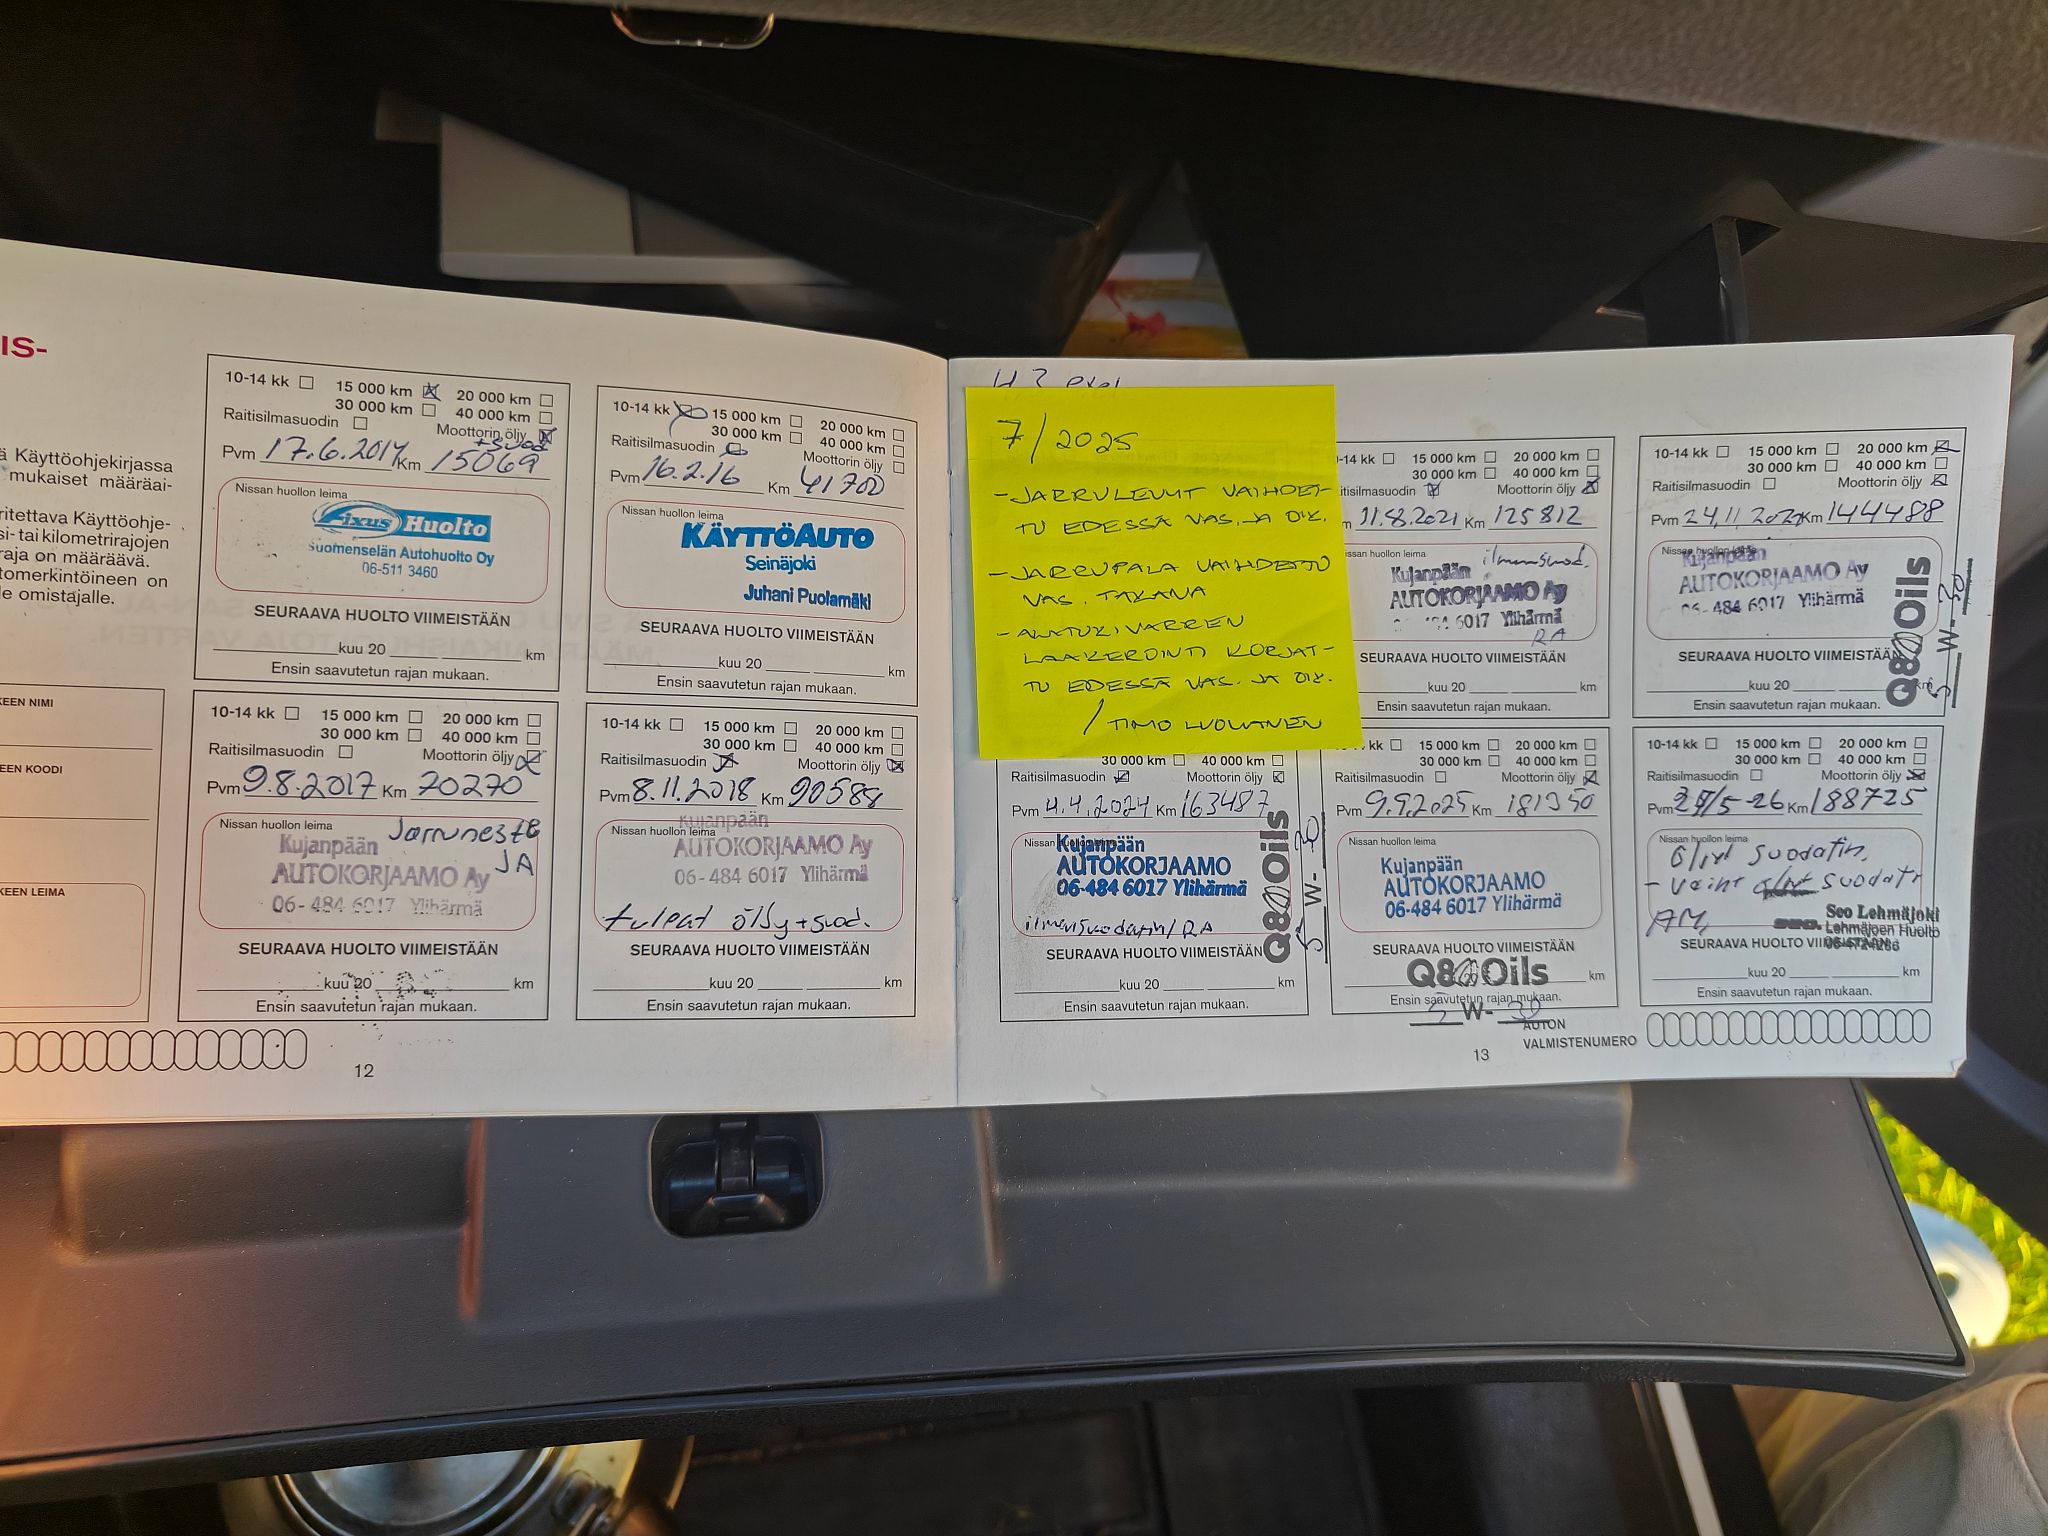 IS-
ä Käyttöohjekirjassa
mukaiset määräai-
ritettava Käyttöohje-
si- tai kilometrirajojen
raja on määräävä.
tomerkintöineen on
le omistajalle.
KEEN NIMI
KEEN KOODI
KEEN LEIMA
10-14 kk 15 000 km 20 000 km
30 000 km 40 000 km
Raitisilmasuodin Moottorin öljy
+suod
Pvm 17.6.2014 Km 15069
Nissan huollon leima
Fixus Huolto
Suomenselän Autohuolto Oy
06-511 3460
SEURAAVA HUOLTO VIIMEISTÄÄN
kuu 20 km
Ensin saavutetun rajan mukaan.
10-14 kk 15 000 km 20 000 km
30 000 km 40 000 km
Raitisilmasuodin Moottorin öljy
Pvm 16.2.16 Km 41700
Nissan huollon leima
KÄYTTÖAUTO
Seinäjoki
Juhani Puolamäki
SEURAAVA HUOLTO VIIMEISTÄÄN
kuu 20 km
Ensin saavutetun rajan mukaan.
10-14 kk 15 000 km 20 000 km
30 000 km 40 000 km
Raitisilmasuodin Moottorin öljy
Pvm 9.8.2017 Km 70270
Nissan huollon leima Jarruneste
Kujanpään JA
AUTOKORJAAMO Ay
06-484 6017 Ylihärmä
SEURAAVA HUOLTO VIIMEISTÄÄN
kuu 20 km
Ensin saavutetun rajan mukaan.
10-14 kk 15 000 km 20 000 km
30 000 km 40 000 km
Raitisilmasuodin Moottorin öljy
Pvm 8.11.2018 Km 90588
Nissan huollon leima
Kujanpään
AUTOKORJAAMO Ay
06-484 6017 Ylihärmä
tuleat öljy+suod.
SEURAAVA HUOLTO VIIMEISTÄÄN
kuu 20 km
Ensin saavutetun rajan mukaan.
12
7/2025
- JARRULEVYT VAIHDET-
TU EDESSÄ VAS. JA OIK.
- JARRUPALA VAIHDETTU
VAS. TAKANA
- ALATUKIVARREN
LAAKEROINTI KORJAT-
TU EDESSÄ VAS. JA OIK.
/ TIMO LUOMANEN
-14 kk 15 000 km 20 000 km
30 000 km 40 000 km
itisilmasuodin Moottorin öljy
m 11.8.2021 Km 125812
ssan huollon leima ilmansuod.
Kujanpään
AUTOKORJAAMO Ay
484 6017 Ylihärmä
RA
SEURAAVA HUOLTO VIIMEISTÄÄN
kuu 20 km
Ensin saavutetun rajan mukaan.
10-14 kk 15 000 km 20 000 km
30 000 km 40 000 km
Raitisilmasuodin Moottorin öljy
Pvm 24.11.2022 Km 144488
Nissan huollon leima
Kujanpään
AUTOKORJAAMO Ay
06-484 6017 Ylihärmä
Q8 Oils
5 W- 30
SEURAAVA HUOLTO VIIMEISTÄÄN
kuu 20 km
Ensin saavutetun rajan mukaan.
30 000 km 40 000 km
Raitisilmasuodin Moottorin öljy
Pvm 4.4.2024 Km 163487
Nissan huollon leima
Kujanpään
AUTOKORJAAMO
06-484 6017 Ylihärmä
ilmansuodatin/RA
Q8 Oils
5 W- 30
SEURAAVA HUOLTO VIIMEISTÄÄN
kuu 20 km
Ensin saavutetun rajan mukaan.
kk 15 000 km 20 000 km
30 000 km 40 000 km
Raitisilmasuodin Moottorin öljy
Pvm 9.9.2025 Km 181350
Nissan huollon leima
Kujanpään
AUTOKORJAAMO
06-484 6017 Ylihärmä
SEURAAVA HUOLTO VIIMEISTÄÄN
Q8 Oils
kuu 20 km
Ensin saavutetun rajan mukaan.
5 W- 30
10-14 kk 15 000 km 20 000 km
30 000 km 40 000 km
Raitisilmasuodin Moottorin öljy
Pvm 27/5-26 Km 188725
Nissan huollon leima
Öljyt suodatin,
- vaiht suodatt
AM,
Seo Lehmäjoki
Lehmäjoen Huolto
SEURAAVA HUOLTO VIIMEISTÄÄN
kuu 20 km
Ensin saavutetun rajan mukaan.
AUTON
VALMISTENUMERO
13